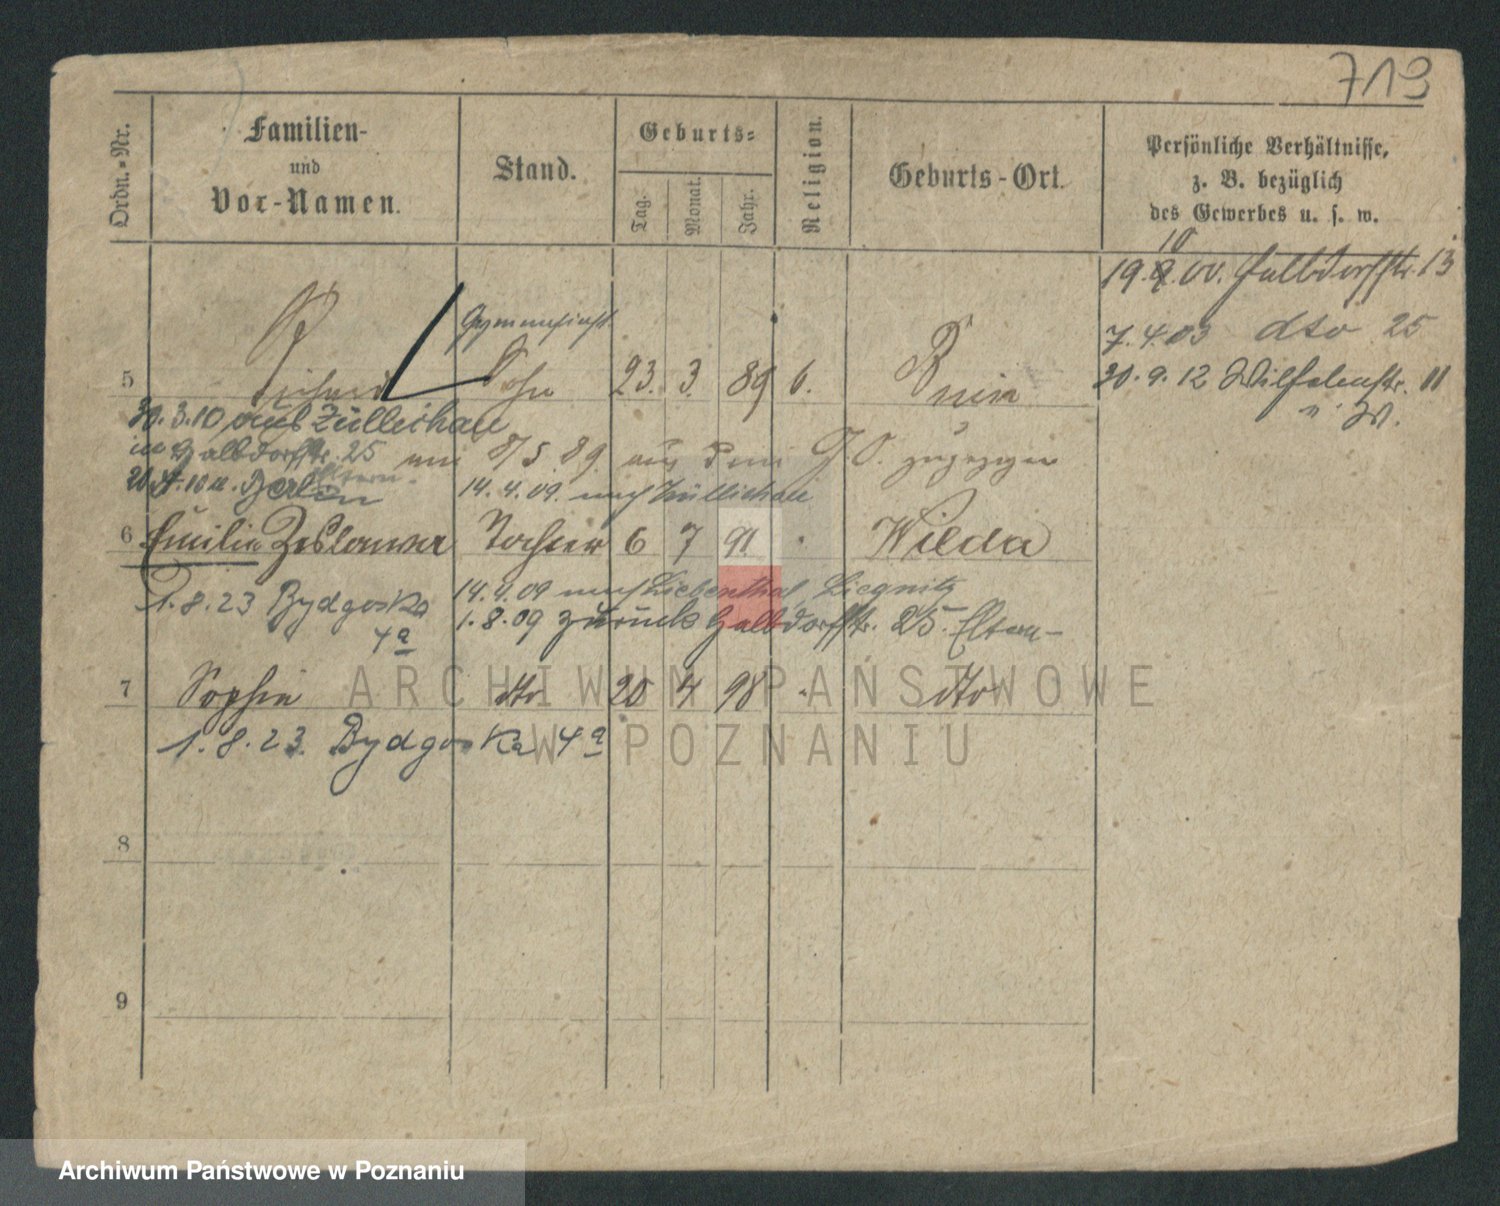 719
Ordn.-Nr.
Familien-
und
Vor-Namen.
Stand.
Geburts-
Tag.
Monat.
Jahr.
Religion.
Geburts-Ort.
Persönliche Verhältnisse,
z. B. bezüglich
des Gewerbes u. s. w.
10
19.9.00. Halbdorfstr. 13
7.4.03 dto 25
20.9.12 11
u. W.
5 Richard Sohn 23. 3. 89 6. Bnin
30.3.10 aus Züllichau
in Halbdorfstr. 25 Eltern-
am 8/5.09. aus dem zugezogen
Berlin
14.4.09. nach Züllichau
6 Emilie Zeslawa Tochter 6 7 91. " Wilda
1.8.23 Bydgoska
4a
14.4.09 nach Liebenthal, Liegnitz
1.8.09 zurück Halbdorfstr. 25. Eltern-
7 Sophie dto 20 4 98 " dto
1.8.23. Bydgoska 4a
8
9
ARCHIWUM PAŃSTWOWE
W POZNANIU
Archiwum Państwowe w Poznaniu